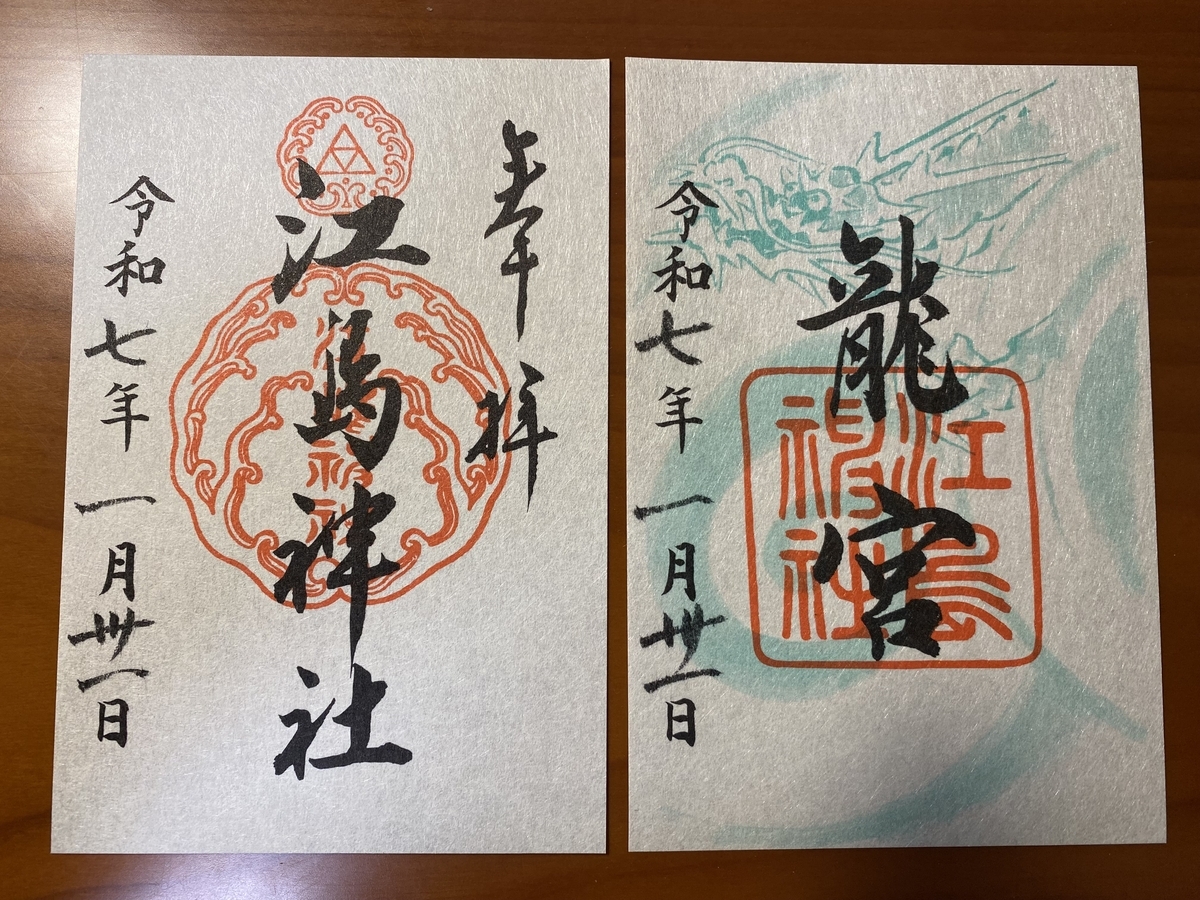 奉拝
江島神社
令和七年一月卅一日
龍宮
江島
神社
令和七年一月卅一日